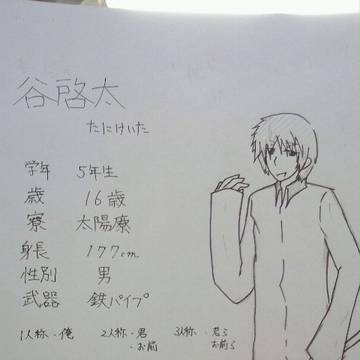 谷啓太
たにけいた
学年 5年生
歳 16歳
寮 太陽療
身長 177cm
性別 男
武器 鉄パイプ
1人称・俺 2人称・君 3人称・君ら
・お前 お前ら